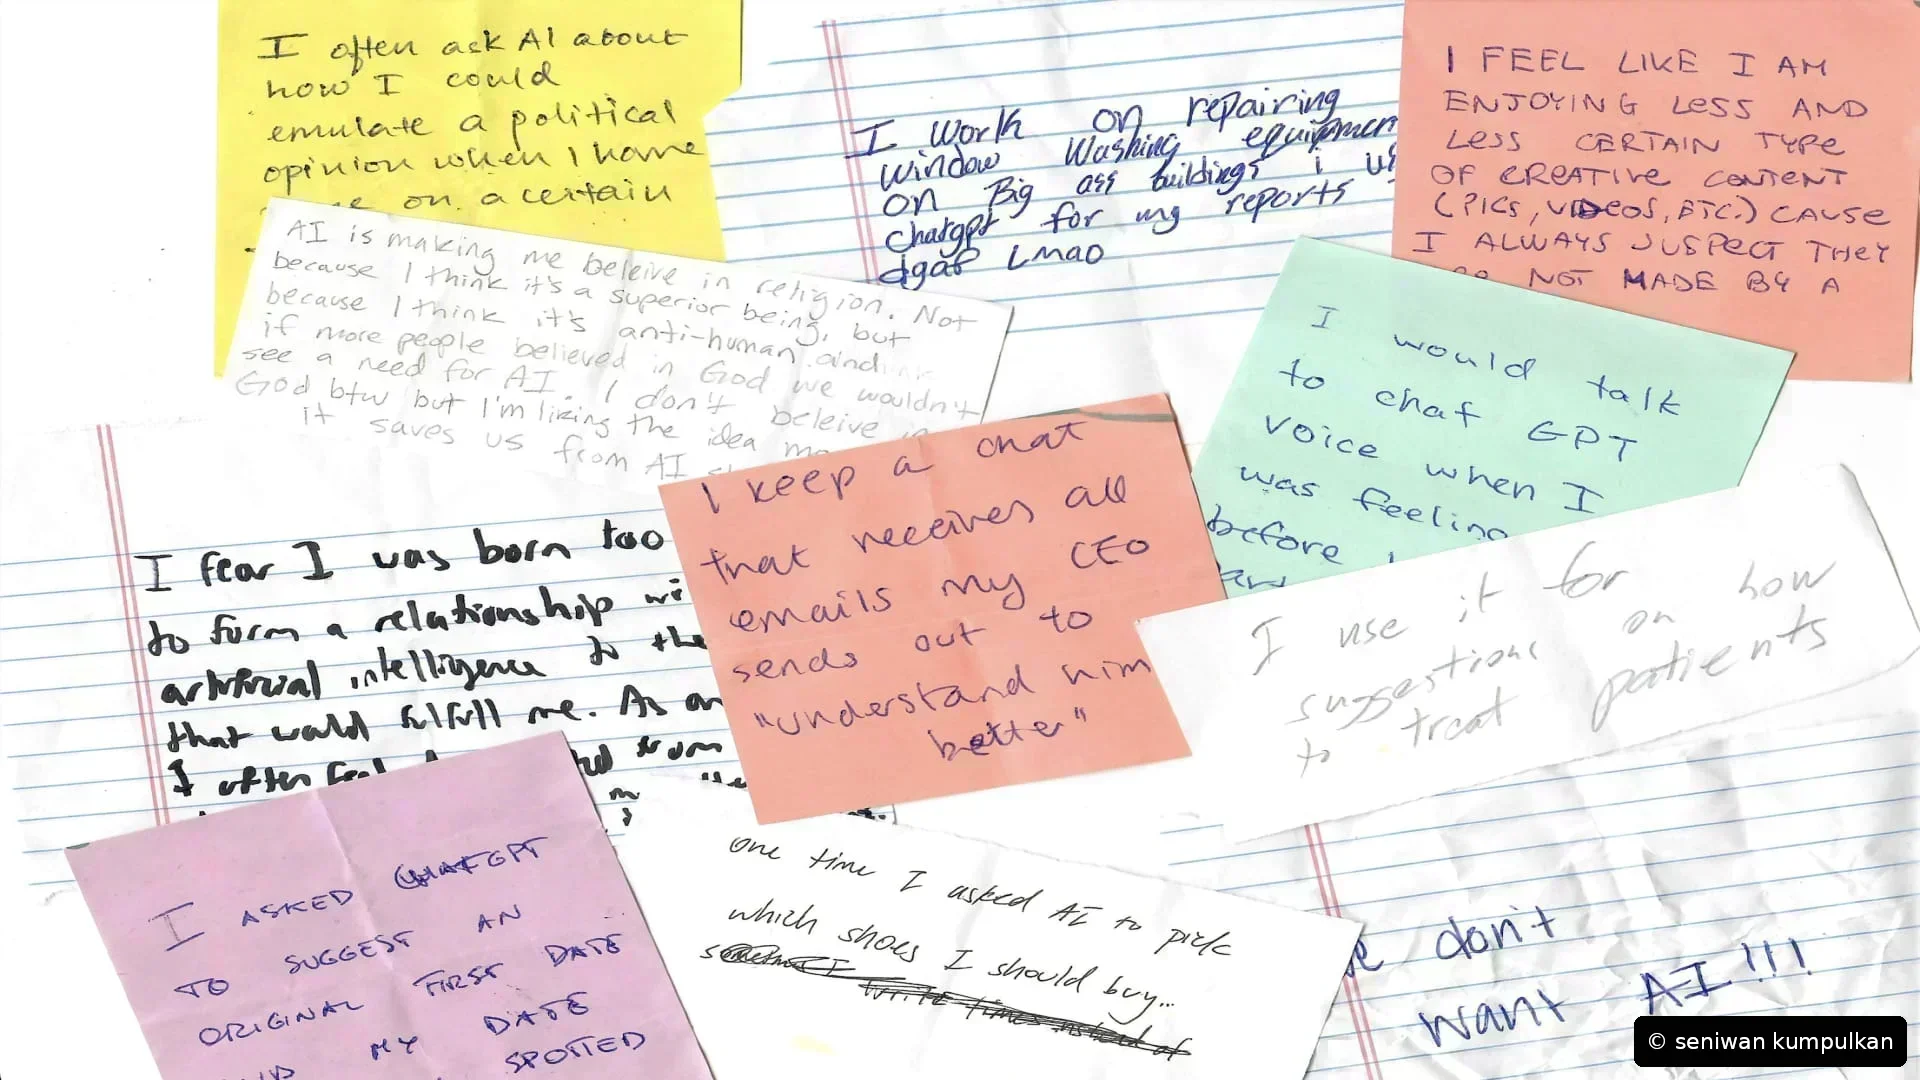 I often ask AI about
how I could
emulate a political
opinion when I have
on a certain
I work on repairing
window washing equipmen
on Big ass buildings i us
chatgpt for my reports
dgaf Lmao
I FEEL LIKE I AM
ENJOYING LESS AND
LESS CERTAIN TYPE
OF CREATIVE CONTENT
(PICS, VIDEOS, ETC.) CAUSE
I ALWAYS SUSPECT THEY
NOT MADE BY A
AI is making me beleive in religion. Not
because I think it's a superior being, but
because I think it's anti-human and
if more people believed in God we wouldn't
see a need for AI. I don't beleive in
God btw but I'm liking the idea
it saves us from AI
I would talk
to chat GPT
voice when I
was feeling
before
I keep a chat
that receives all
emails my CEO
sends out to
"understand him
better"
I fear I was born too
to form a relationship wi
artificial intelligence to the
that would fulfill me. As an
I often feel
from
I use it for
suggestions on how
to treat patients
I ASKED CHATGPT
TO SUGGEST AN
ORIGINAL FIRST DATE
MY DATE
SPOTTED
one time I asked AI to pick
which shoes I should buy...
write times instead of
don't
want AI!!!
© seniwan kumpulkan